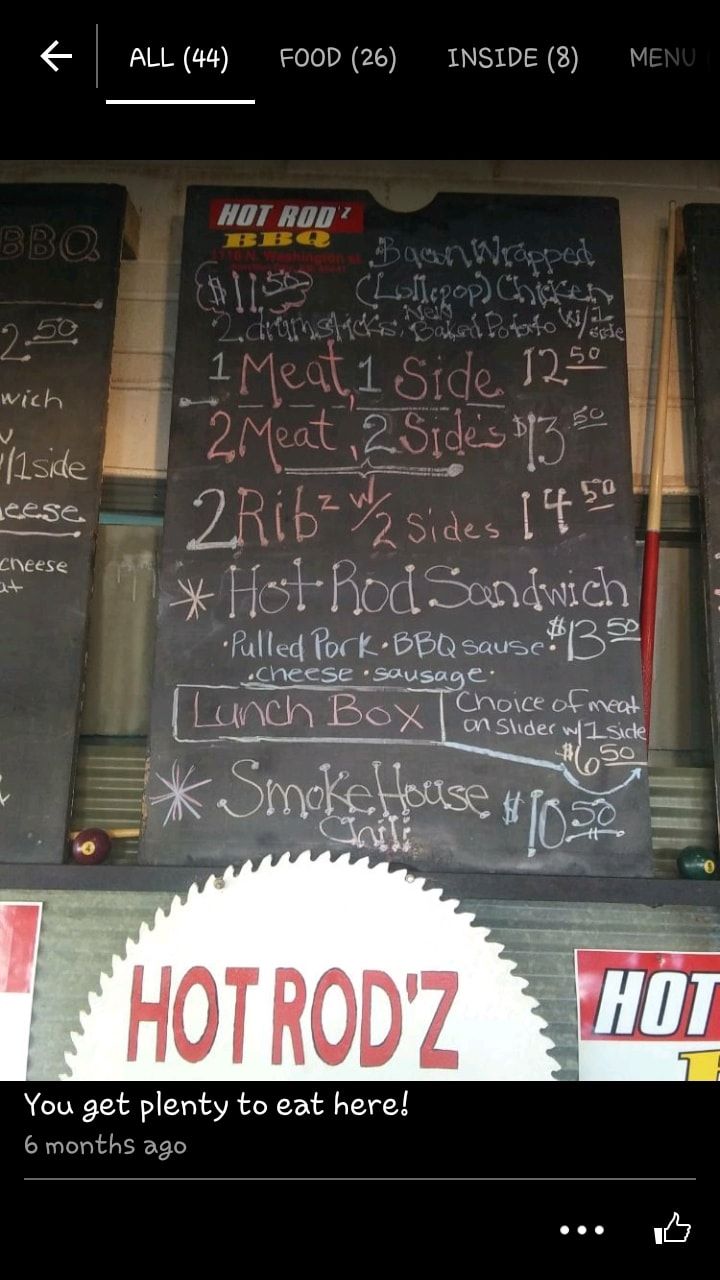 ALL (44) FOOD (26) INSIDE (8) MENU
BBQ
2.50
wich
/1side
eese
cheese
at
HOT ROD'Z
BBQ
1116 N. Washington st
Bacon Wrapped
$11.50 (Lollipop) Chicken
New
2 drumsticks, Baked Potato w/1 side
1 Meat, 1 Side 12 50
2 Meat, 2 Side's $13 50
2 Ribz w/ 2 Sides 14 50
* Hot Rod Sandwich
·Pulled Pork·BBQ sause· $13 50
·cheese ·sausage·
Lunch Box
Choice of meat
on Slider w/1 side
$6 50
* SmokeHouse $10 50
Chili
HOT ROD'Z
HOT
You get plenty to eat here!
6 months ago